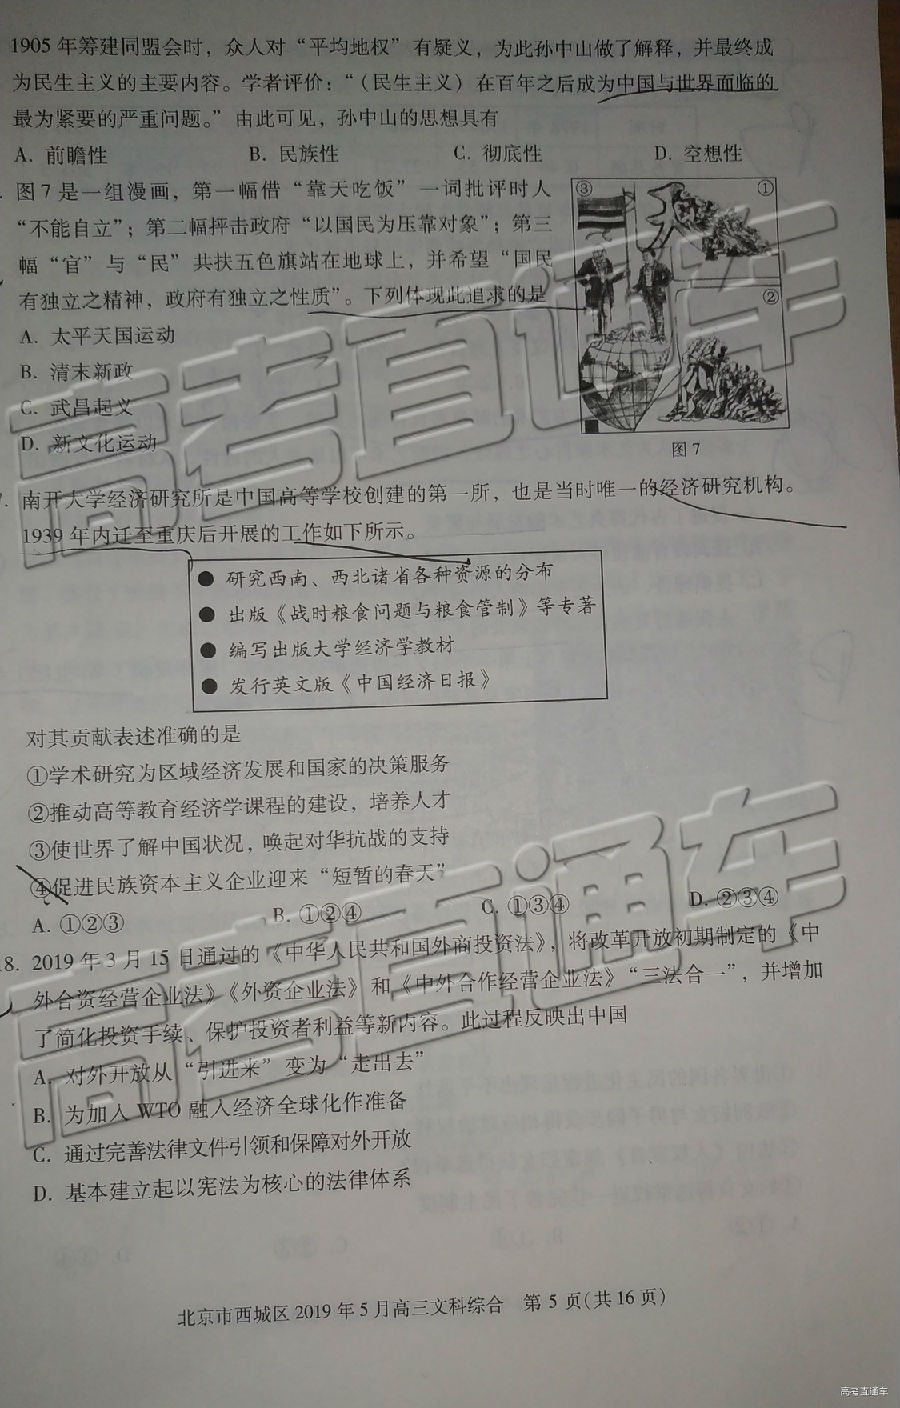 1905 年筹建同盟会时，众人对“平均地权”有疑义，为此孙中山做了解释，并最终成
为民生主义的主要内容。学者评价：“（民生主义）在百年之后成为中国与世界面临的
最为紧要的严重问题。”由此可见，孙中山的思想具有
A. 前瞻性 B. 民族性 C. 彻底性 D. 空想性
图 7 是一组漫画，第一幅借“靠天吃饭”一词批评时人
“不能自立”；第二幅抨击政府“以国民为压靠对象”；第三
幅“官”与“民”共扶五色旗站在地球上，并希望“国民
有独立之精神，政府有独立之性质”。下列体现此追求的是
A. 太平天国运动
B. 清末新政
C. 武昌起义
D. 新文化运动
③
①
②
图 7
南开大学经济研究所是中国高等学校创建的第一所，也是当时唯一的经济研究机构。
1939 年内迁至重庆后开展的工作如下所示。
● 研究西南、西北诸省各种资源的分布
● 出版《战时粮食问题与粮食管制》等专著
● 编写出版大学经济学教材
● 发行英文版《中国经济日报》
对其贡献表述准确的是
①学术研究为区域经济发展和国家的决策服务
②推动高等教育经济学课程的建设，培养人才
③使世界了解中国状况，唤起对华抗战的支持
④促进民族资本主义企业迎来“短暂的春天”
A. ①②③ B. ①②④ C. ①③④ D. ②③④
18. 2019 年 3 月 15 日通过的《中华人民共和国外商投资法》，将改革开放初期制定的《中
外合资经营企业法》《外资企业法》和《中外合作经营企业法》“三法合一”，并增加
了简化投资手续、保护投资者利益等新内容。此过程反映出中国
A. 对外开放从“引进来”变为“走出去”
B. 为加入 WTO 融入经济全球化作准备
C. 通过完善法律文件引领和保障对外开放
D. 基本建立起以宪法为核心的法律体系
北京市西城区 2019 年 5 月高三文科综合 第 5 页(共 16 页)
高考直通车
高考直通车
高考直通车